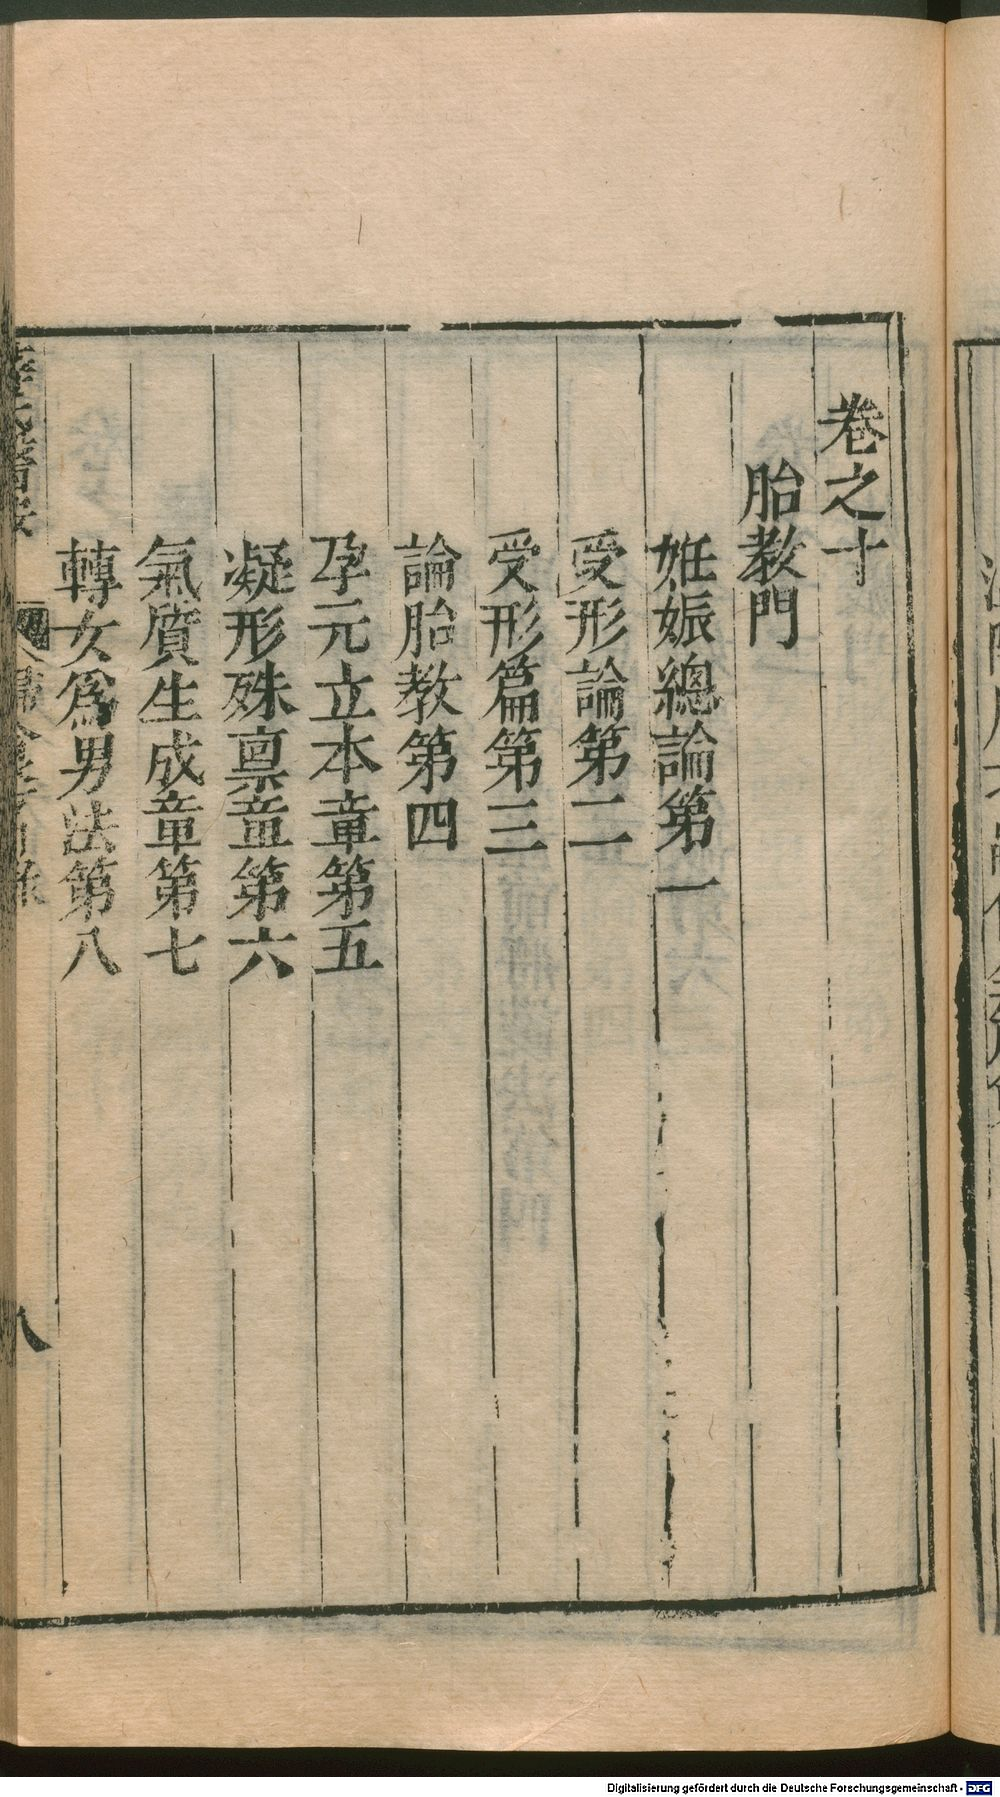 卷之十
胎教門
妊娠總論第一
受形論第二
受形篇第三
論胎教第四
孕元立本章第五
凝形殊禀章第六
氣質生成章第七
轉女爲男法第八
八
Digitalisierung gefördert durch die Deutsche Forschungsgemeinschaft - DFG